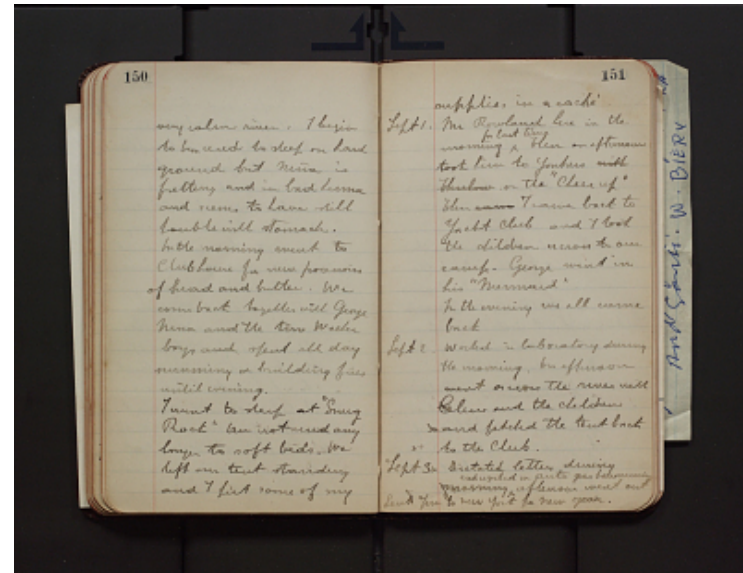 150
very calm river. I begin
to be used to sleep on hard
ground but Nina is
fretting and in bad humor
and seems to have still
trouble with stomach.
In the morning went to
Clubhouse for new provisions
of bread and butter. We
come back together with George
Nina and the two
boys and spent all day
swimming or building fires
until evening.
I went to sleep at "Snug
Rock" am not used any
longer to soft beds. We
left our tent standing
and I first some of my
151
supplies in a caché
Sept 1. Mr Rowland here in the
for last time
morning & then in afternoon
took him to Yonkers with
on the "Cheer up"
then I came back to
Yacht Club and I took
the children across to our
camp. George went in
his "Mermaid"
In the evening we all came
back
Sept 2. Worked in laboratory during
the morning, in afternoon
went across the river with
Celine and the children
and fetched the tent back
to the Club.
Sept 3. Dictated letters during
morning, afternoon went out
to New York for new
W. BIERY